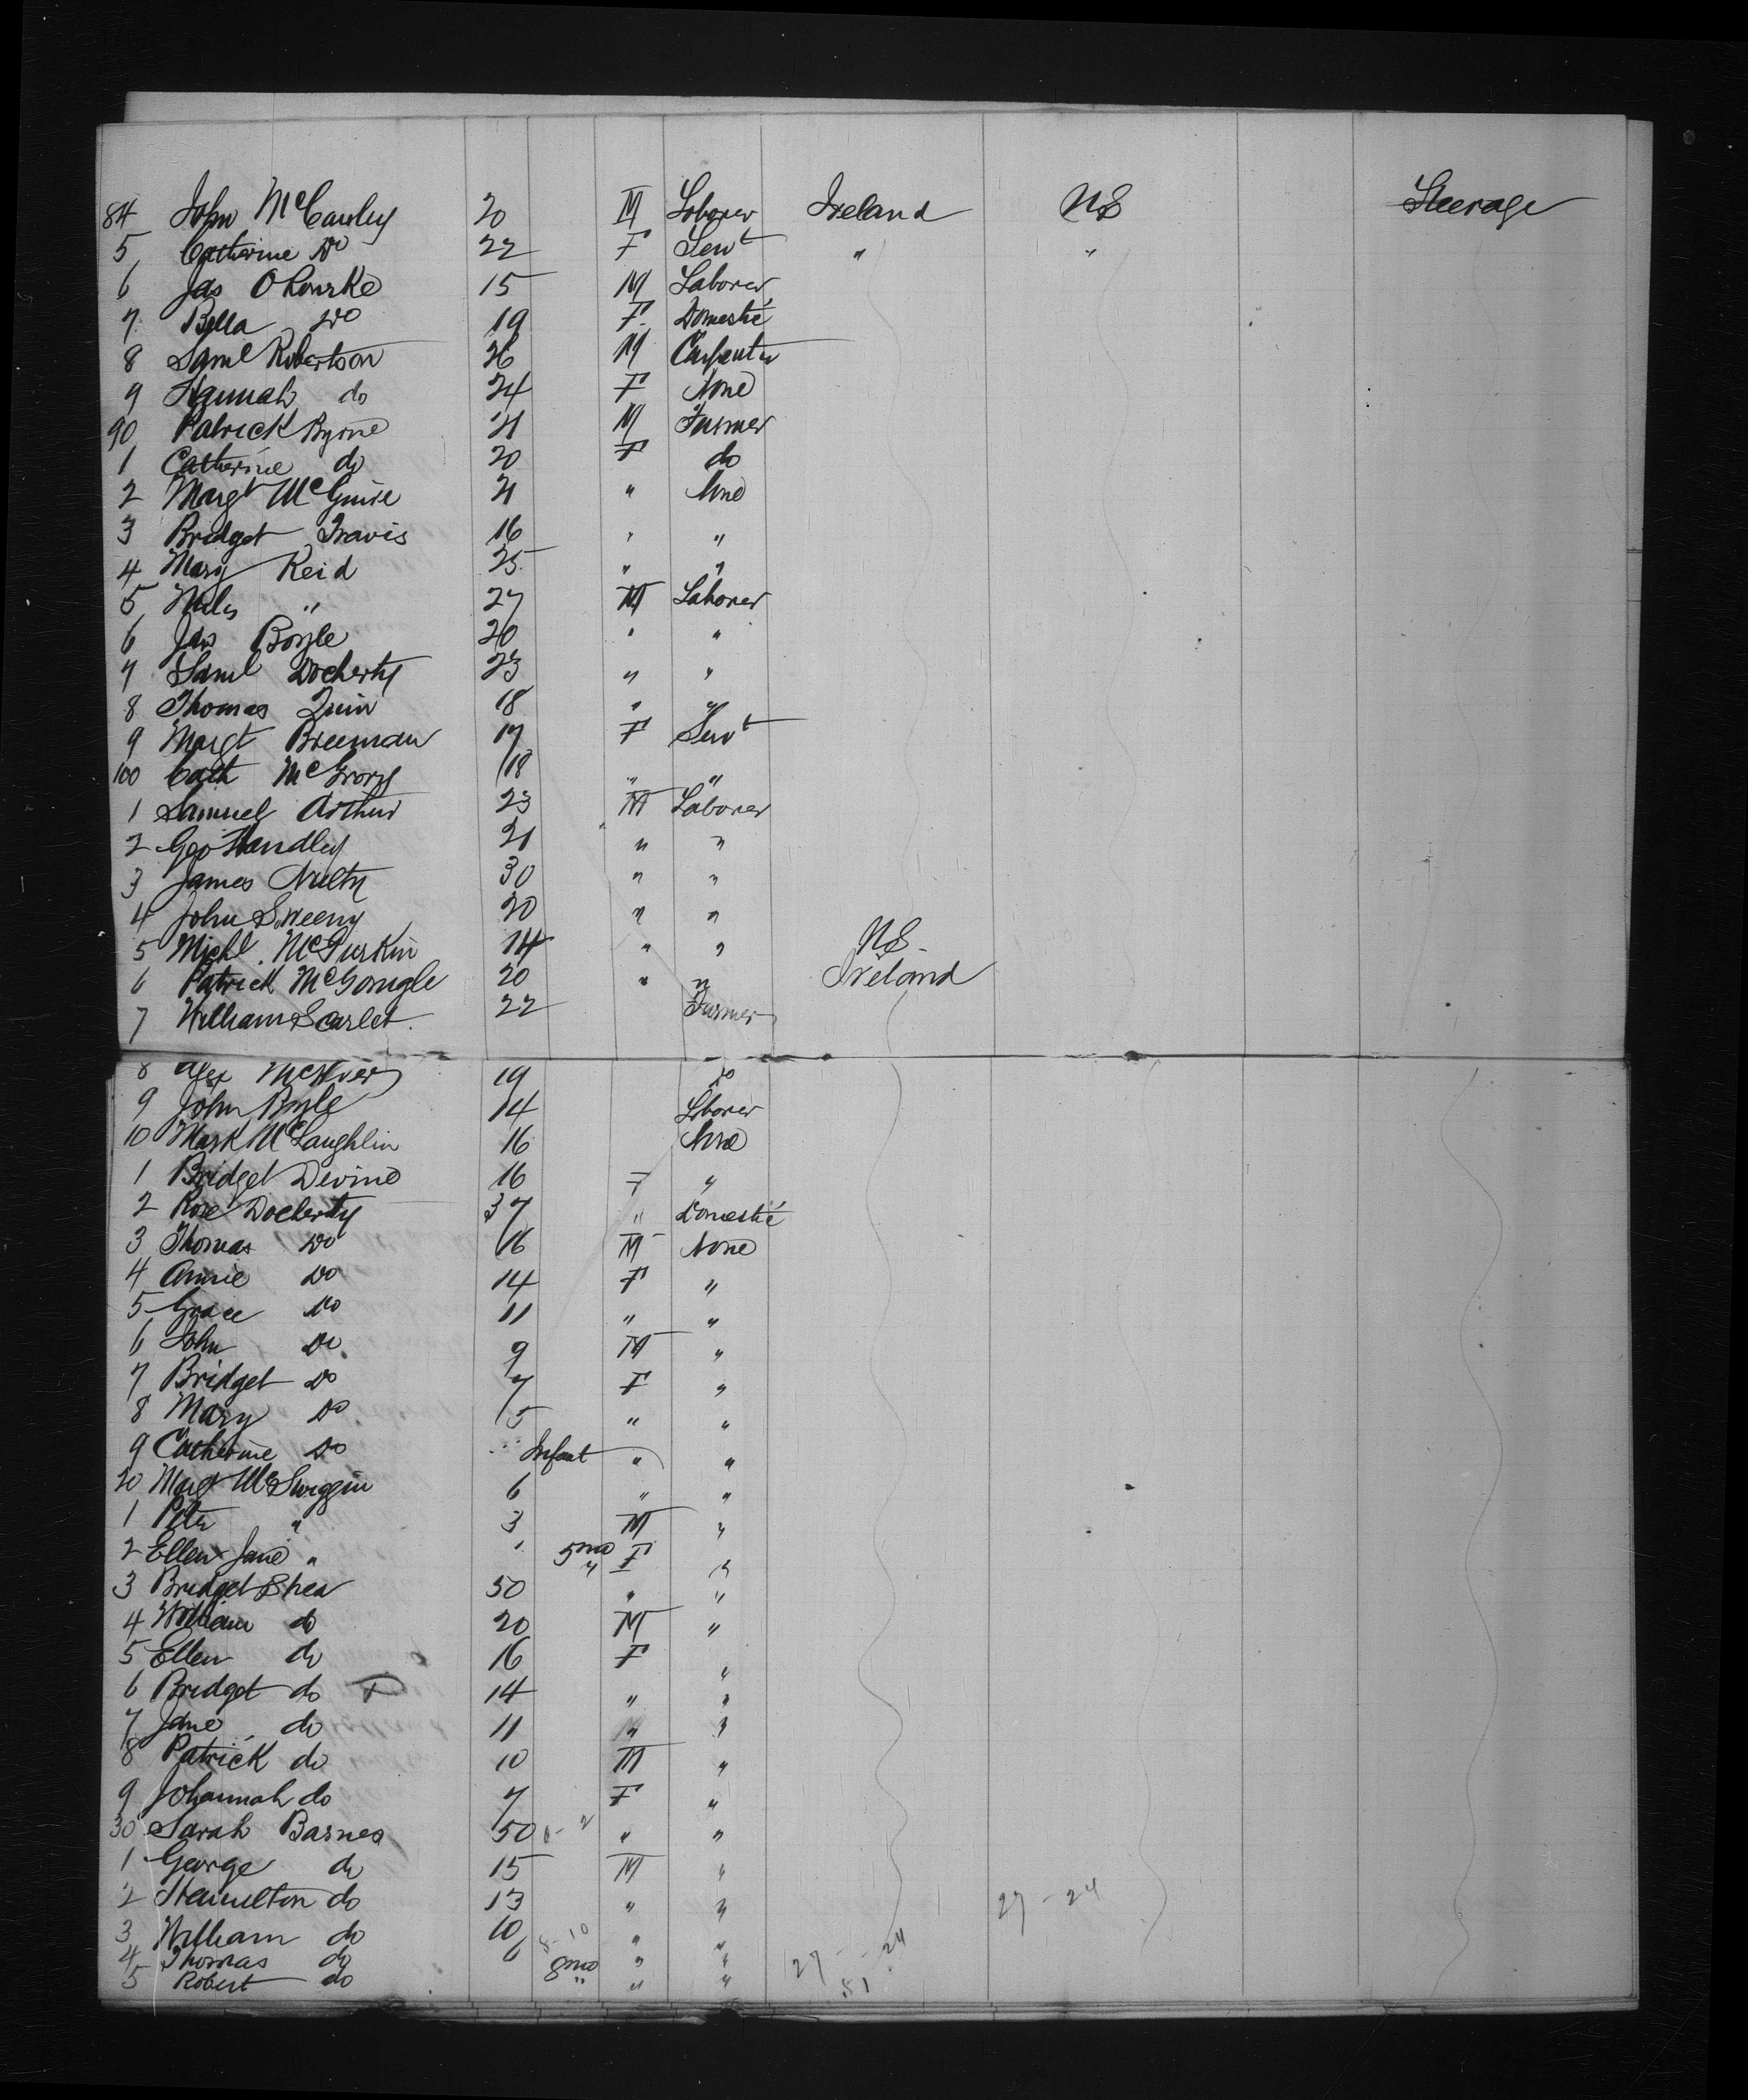 84 John McCauley 20 M Laborer Ireland US Steerage
5 Catherine Do 22 F Servt " "
6 Jas O Rourke 15 M Laborer
7 Bella Do 19 F Domestic
8 Saml Robertson 26 M Carpenter
9 Hannah do 24 F None
90 Patrick Byrne 21 M Farmer
1 Catherine do 20 F do
2 Margt McGuire 21 " None
3 Bridget Travis 16 " "
4 Mary Reid 25 " "
5 Miles " 27 M Laborer
6 Jas Boyle 20 " "
7 Saml Docherty 23 " "
8 Thomas Quin 18 " "
9 Margt Breeman 17 F Servt
100 Cath McGrory 18 " "
1 Samuel Arthur 23 M Laborer
2 Geo Handley 21 " "
3 James Nulty 30 " "
4 John Sweeny 20 " "
5 Michl. McGurkin 14 " " US.
6 Patrick McGonigle 20 " " Ireland
7 William Scarlet. 22 Farmer
8 Alex McIlver 19 Do
9 John Boyle 14 Laborer
10 Mark McLaughlin 16 None
1 Bridget Devine 16 F "
2 Rose Docherty 37 " Domestic
3 Thomas Do 16 M None
4 Annie Do 14 F "
5 Grace Do 11 " "
6 John Do. 9 M "
7 Bridget Do 7 F "
8 Mary Do. 5 " "
9 Catherine Do Infant " "
20 Margt McSwiggin 6 " "
1 Peter " 3 M "
2 Ellen Jane " 5mo F "
3 Bridget Shea 50 " "
4 William do 20 M "
5 Ellen do 16 F "
6 Bridget do 14 " "
7 Jane do 11 " "
8 Patrick do 10 M "
9 Johannah do 7 F "
30 Sarah Barnes 50 " "
1 George do 15 M "
2 Hamilton do 13 " " 27 - 24
3 William do 10 " "
4 Thomas do 6 " " 27 - 24
5 Robert do 8mo " " 51